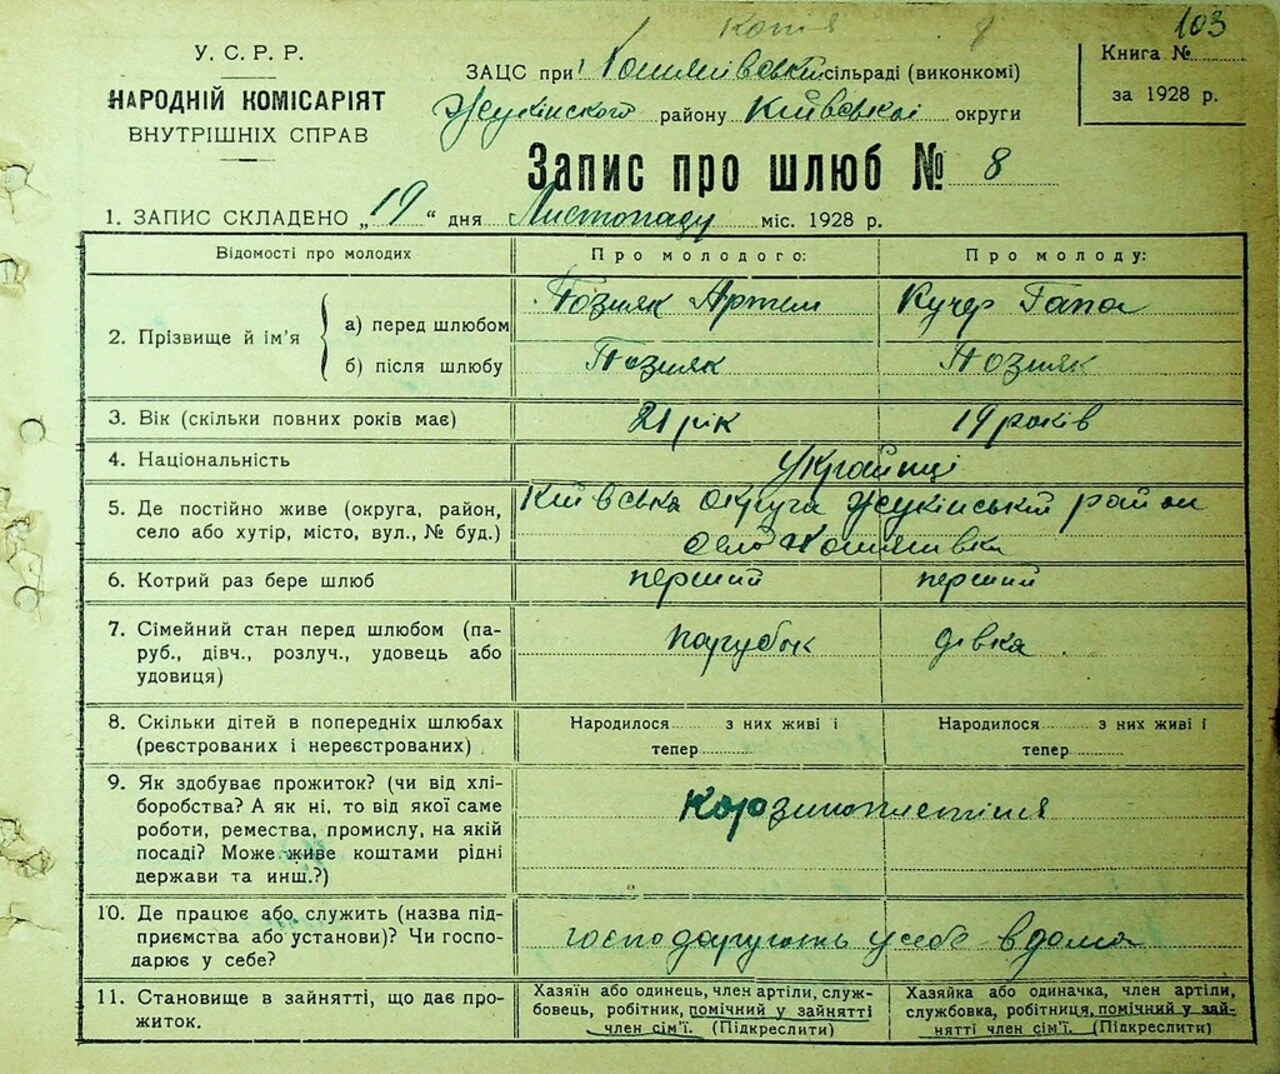 Копія
103
У. С. Р. Р.
НАРОДНІЙ КОМІСАРІЯТ
ВНУТРІШНІХ СПРАВ
ЗАЦС при сільраді (виконкомі)
Жукінского району Київської округи
Книга №
за 1928 р.
Запис про шлюб № 8
1. ЗАПИС СКЛАДЕНО „19“ дня Листопаду міс. 1928 р.
Відомості про молодих
Про молодого:
Про молоду:
2. Прізвище й ім'я
а) перед шлюбом
Позняк Артем
Кучер Гапа
б) після шлюбу
Позняк
Позняк
3. Вік (скільки повних років має)
21 рік
19 років
4. Національність
Українці
5. Де постійно живе (округа, район,
село або хутір, місто, вул., № буд.)
Київська округа Жукінський район
село
6. Котрий раз бере шлюб
перший
перший
7. Сімейний стан перед шлюбом (па-
руб., дівч., розлуч., удовець або
удовиця)
парубок
дівка
8. Скільки дітей в попередніх шлюбах
(реєстрованих і нереєстрованих)
Народилося з них живі і
тепер
Народилося з них живі і
тепер
9. Як здобуває прожиток? (чи від хлі-
боробства? А як ні, то від якої саме
роботи, ремества, промислу, на якій
посаді? Може живе коштами рідні
держави та инш.?)
Корзиноплетіння
10. Де працює або служить (назва під-
приємства або установи)? Чи госпо-
дарює у себе?
господарують у себе вдома
11. Становище в зайнятті, що дає про-
житок.
Хазяїн або одинець, член артіли, служ-
бовець, робітник, помічний у зайнятті
член сім'ї. (Підкреслити)
Хазяйка або одиначка, член артіли,
службовка, робітниця, помічний у зай-
нятті член сім'ї. (Підкреслити)